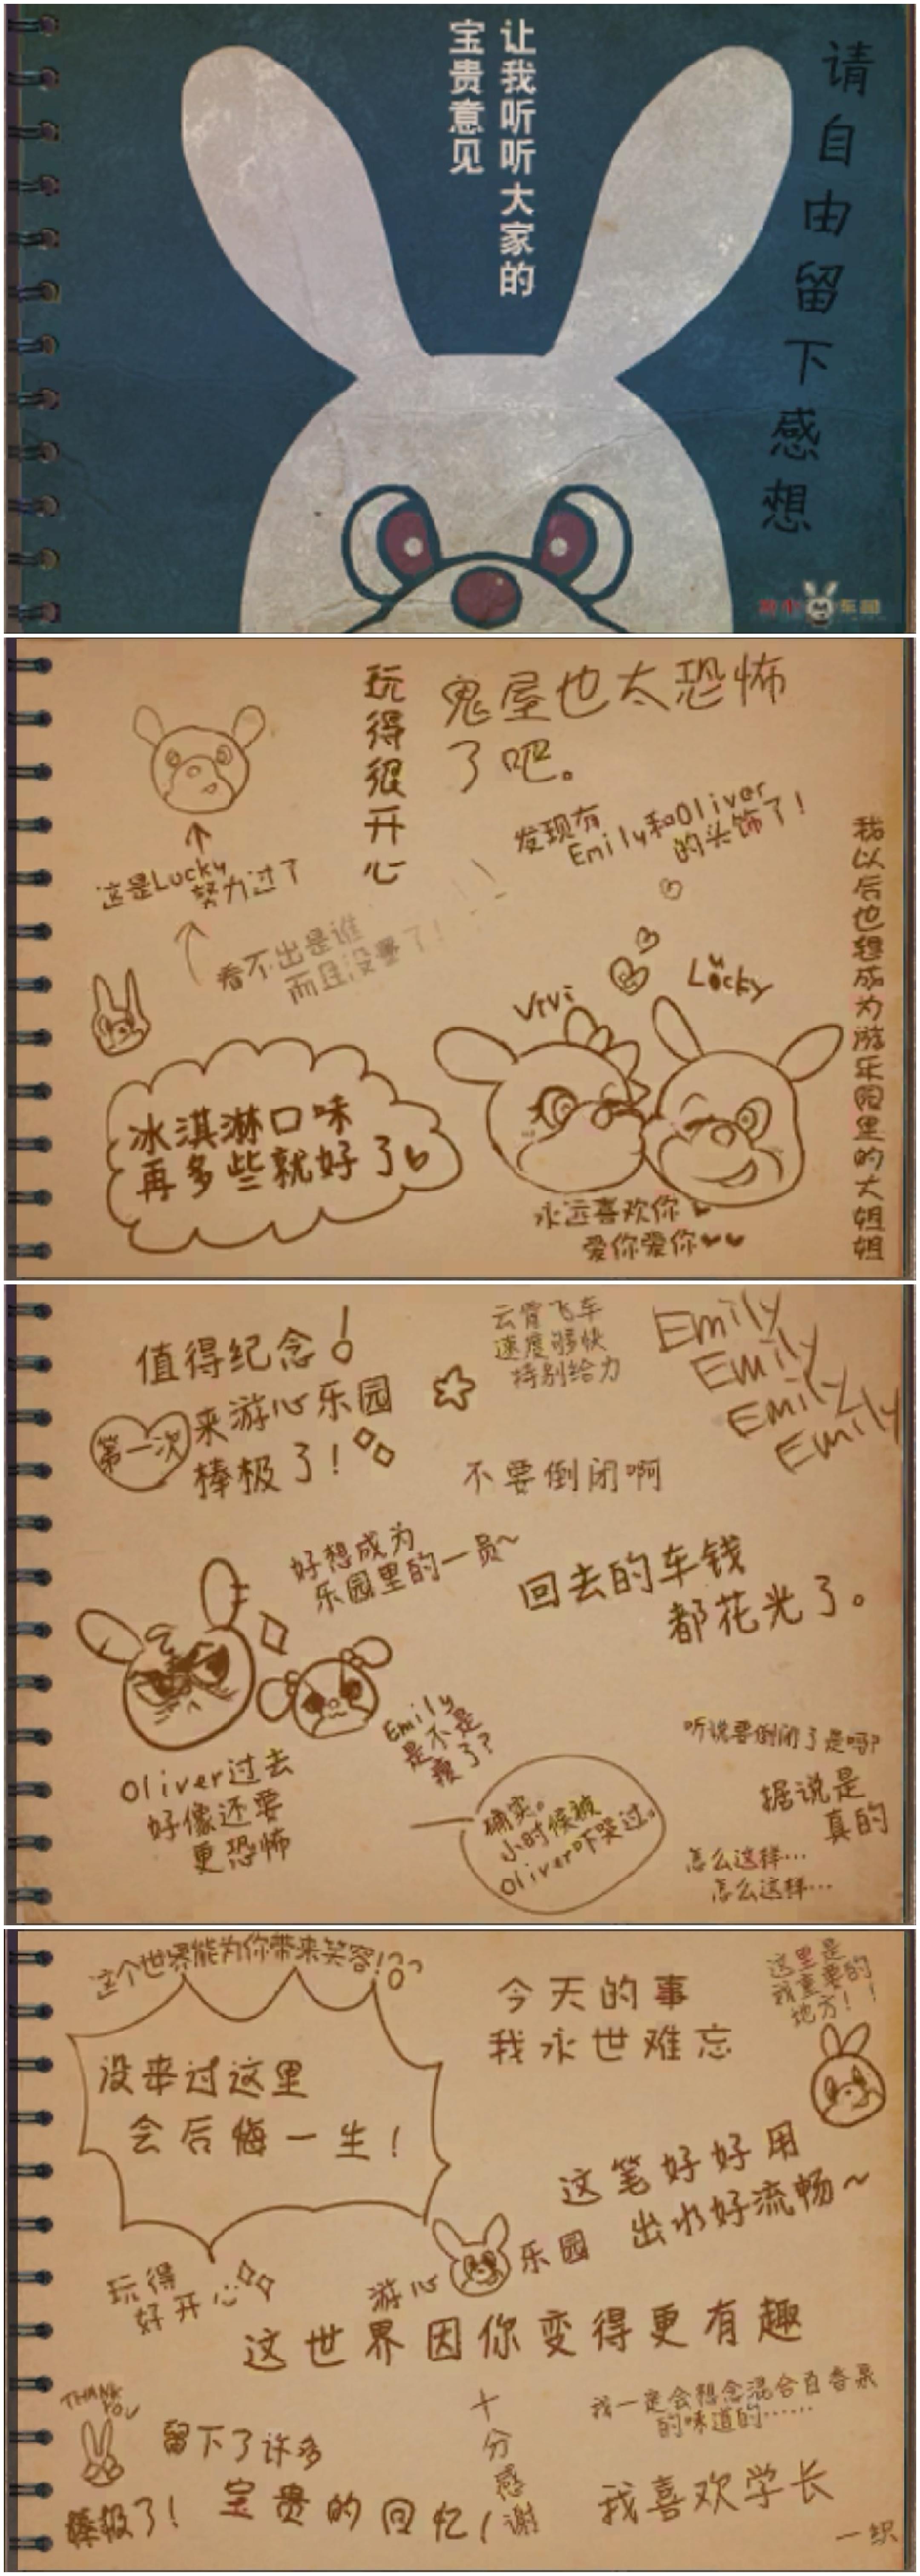 让我听听大家的
宝贵意见
请自由留下感想
玩得很开心
鬼屋也太恐怖
了吧。
发现有
Emily和Oliver
的头饰了!
这是Lucky
努力过了
看不出是谁
而且没耳了!
ViVi
Lucky
冰淇淋口味
再多些就好了
永远喜欢你
爱你爱你
我以后也想成为游乐园里的大姐姐
值得纪念!
第一次来游心乐园
棒极了!
云霄飞车
速度够快
特别给力
Emily
Emily
Emily
Emily
不要倒闭啊
好想成为
乐园里的一员~
回去的车钱
都花光了。
Oliver过去
好像还要
更恐怖
Emily
是不是
瘦了?
确实。
小时候被
Oliver吓哭过。
听说要倒闭了是吗?
据说是
真的
怎么这样…
怎么这样…
这个世界能为你带来笑容!
没来过这里
会后悔一生!
今天的事
我永世难忘
这里是
我重要的
地方!!
这笔好好用
出水好流畅~
玩得
好开心
游心乐园
这世界因你变得更有趣
THANK
YOU
棒极了!
留下了许多
宝贵的回忆!
十分感谢
我一定会想念混合百香果
的味道的……
我喜欢学长
一织